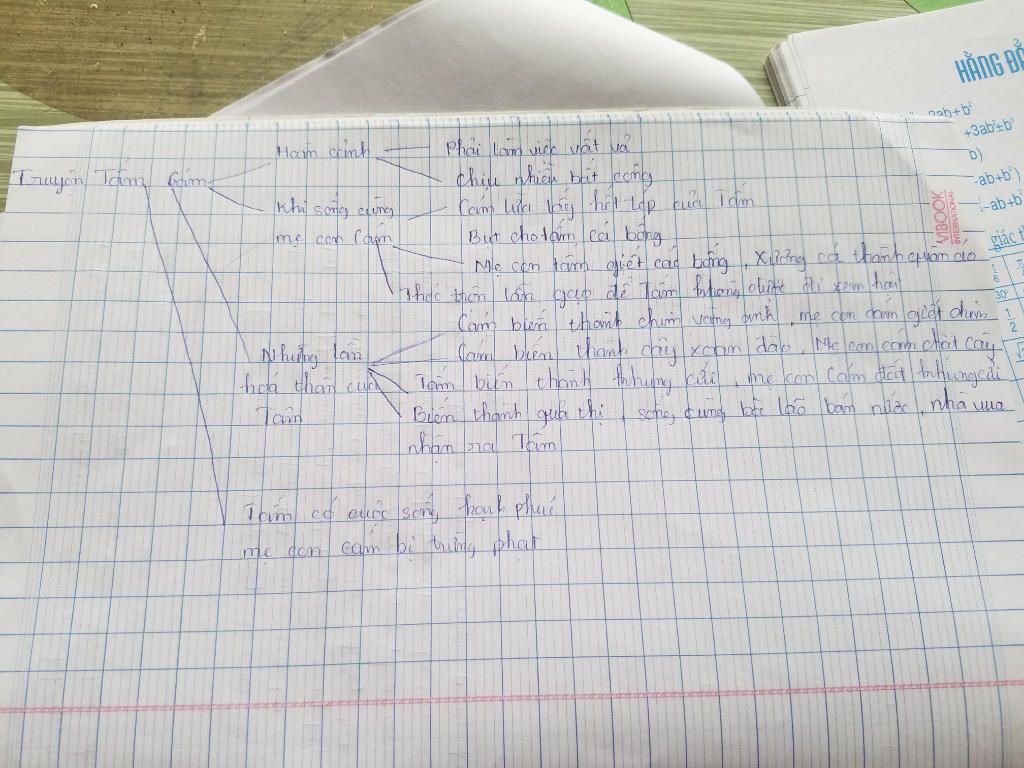 HẰNG ĐẲ
2ab+b²
+3ab²±b³
b)
-ab+b²)
-ab+b²
giác
VIBOOK
INTERNATIONAL
Hoàn cảnh
Phải làm việc vất vả
Truyện Tấm Cám
Chịu nhiều bất công
Khi sống cùng
mẹ con Cám
Cám lừa lấy hết tép của Tấm
Bụt cho tấm cá bống
Mẹ con tấm giết cá bống, xương cá thành quần áo
Thóc trộn lẫn gạo để Tấm không được đi xem hội
Những lần
hoá thân của
Tấm
Cám biến thành chim vàng anh, mẹ con cám giết chim
Cám biến thành cây xoan đào, Mẹ con cám chặt cây
Tấm biến thành khung cửi, mẹ con Cám đốt khung cửi
Biến thành quả thị, sống cùng bà lão bán nước, nhà vua
nhận ra Tấm
Tấm có cuộc sống hạnh phúc
mẹ con cám bị trừng phạt